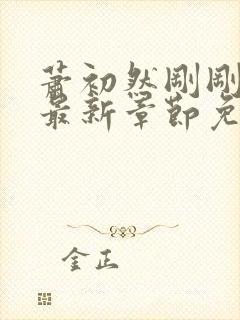 萧初然刚刚
最新章节免
金正